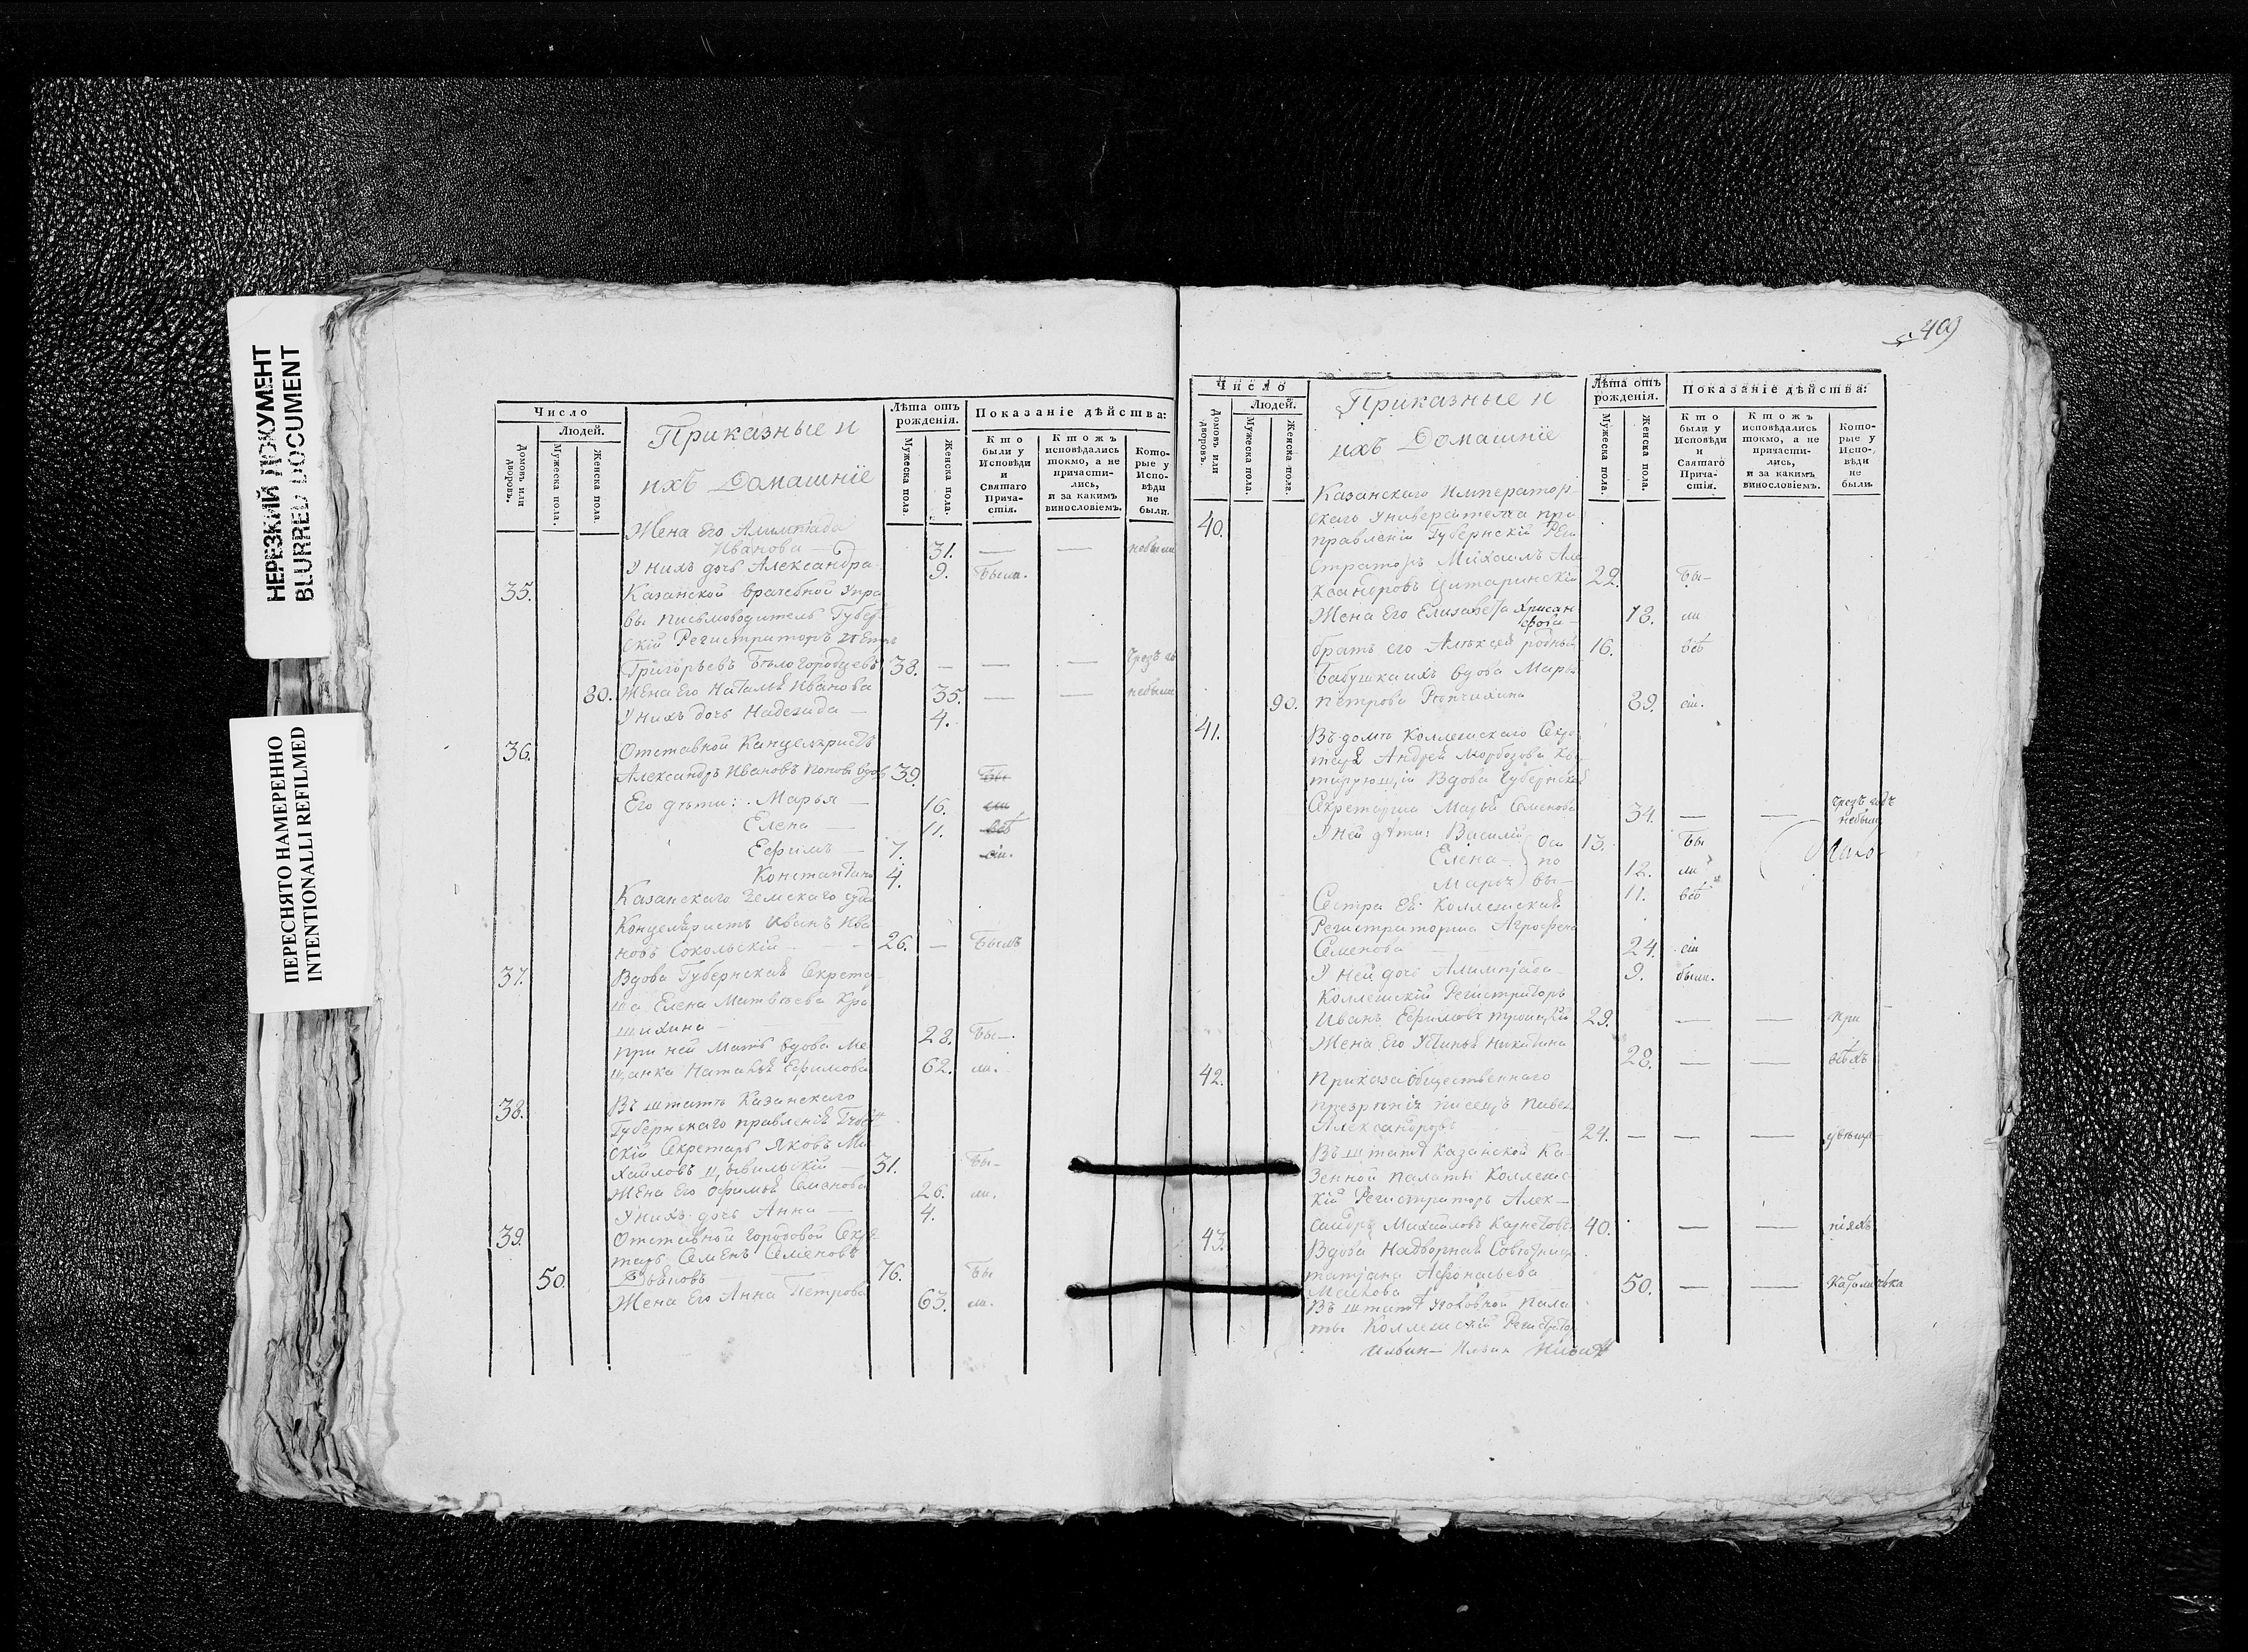 НЕРЕЗКИЙ ДОКУМЕНТ
BLURRED DOCUMENT
ПЕРЕСНЯТО НАМЕРЕННО
INTENTIONALLI REFILMED
Число
Людей.
Домовъ или дворовъ.
Мужеска пола.
Женска пола.
Приказные и
ихъ Домашніе
Лѣта отъ рожденія.
Мужеска пола.
Женска пола.
Показаніе дѣйства:
Кто были у Исповѣди и Святаго Причастія.
Ктожъ исповѣдались токмо, а не причастились, и за какимъ винословіемъ.
Которые у Исповѣди не были.
Жена Его Алимпіада
Иванова — 31. — — небыли
У нихъ дочь Александра 9. Была.
35. Казанской врачебной Упра
вы письмоводитель Губер
скій Регистраторъ Петръ
Григорьевъ Бѣлогородцевъ 38. — — —
80. Жена Его Наталья Иванова 35. — — небыли
У нихъ дочь Надежда — 4.
36. Отставной Канцеляристъ
Александръ Ивановъ Поповъ вдовъ 39. Бы
Его дѣти: Марья — 16. ли
Елена — 11. всѣ
Ефимъ — 7. сіи.
Константинъ 4.
Казанскаго Земскаго суда
Канцеляристъ Иванъ Ива
новъ Сокольскій — 26. — Былъ
37. Вдова Губернская Секрета
ша Елена Матвѣева Кра
шихина — 28. Бы—.
При ней Мать вдова Ме
щанка Наталья Ефимова 62. ли.
38. Въ штатѣ Казанскаго
Губернскаго правленія Губерн
скій Секретарь Яковъ Ми
хайловъ Цывильскій — 31. Бы—
Жена Его Офимья Семенова 26. ли.
У нихъ дочь Анна — 4.
39. Отставной Городовой Секре
тарь Семенъ Семеновъ
50. 76. Бы
Жена Его Анна Петрова 63. ли.
409
Число
Людей.
Домовъ или дворовъ.
Мужеска пола.
Женска пола.
Приказные и
ихъ Домашніе
Лѣта отъ рожденія.
Мужеска пола.
Женска пола.
Показаніе дѣйства:
Кто были у Исповѣди и Святаго Причастія.
Ктожъ исповѣдались токмо, а не причастились, и за какимъ винословіемъ.
Которые у Исповѣди не были.
Казанскаго Император
40. скаго Университета при
правленіи Губернскій Реги
страторъ Михаилъ Але
ксандровъ Цитаринскій 22. Бы—
Жена Его Елизавета 18. ли
братъ его Алексей родный 16. всѣ
Бабушка ихъ вдова Марья
90. Петрова 89. сіи.
41. Въ домѣ Коллежскаго Секре
таря Андрея Ква
тирующій Вдова Губернская
Секретарша Марья Семенова 34. — — чрезъ годъ небыла
У ней дѣти: Василій 13. Бы
Елена — 12. ли
Марья 11. всѣ
Сестра Ея Коллежская
Регистраторша Аграфена
Семенова 24. сіи
У ней дочь Алимпіада 9. были.
Коллежскій Регистраторъ
Иванъ Ефимовъ 29. — — при
Жена Его Устинья Никитина 28. — — всѣхъ
42. Приказа Общественнаго
призрѣнія писецъ Павелъ
Александровъ 24. — — — увѣща
Въ штатѣ Казанской Ка
зенной палаты Коллежс
кій Регистраторъ Алек—
сандръ Михайловъ Казнечовъ 40. — — ніяхъ
43. Вдова Надворная Совѣтница
татіана Афонасьева
50. — —
Въ штатѣ Уголовной Пала
ты Коллежскій Регистратор